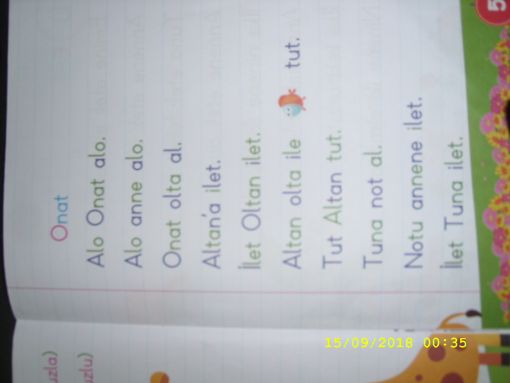 Onat
Alo Onat alo.
Alo anne alo.
Onat olta al.
Altan'a ilet.
İlet Oltan ilet.
Altan olta ile tut.
Tut Altan tut.
Tuna not al.
Notu annene ilet.
İlet Tuna ilet.
uzla)
uzlu)
5
15/09/2018 00:35